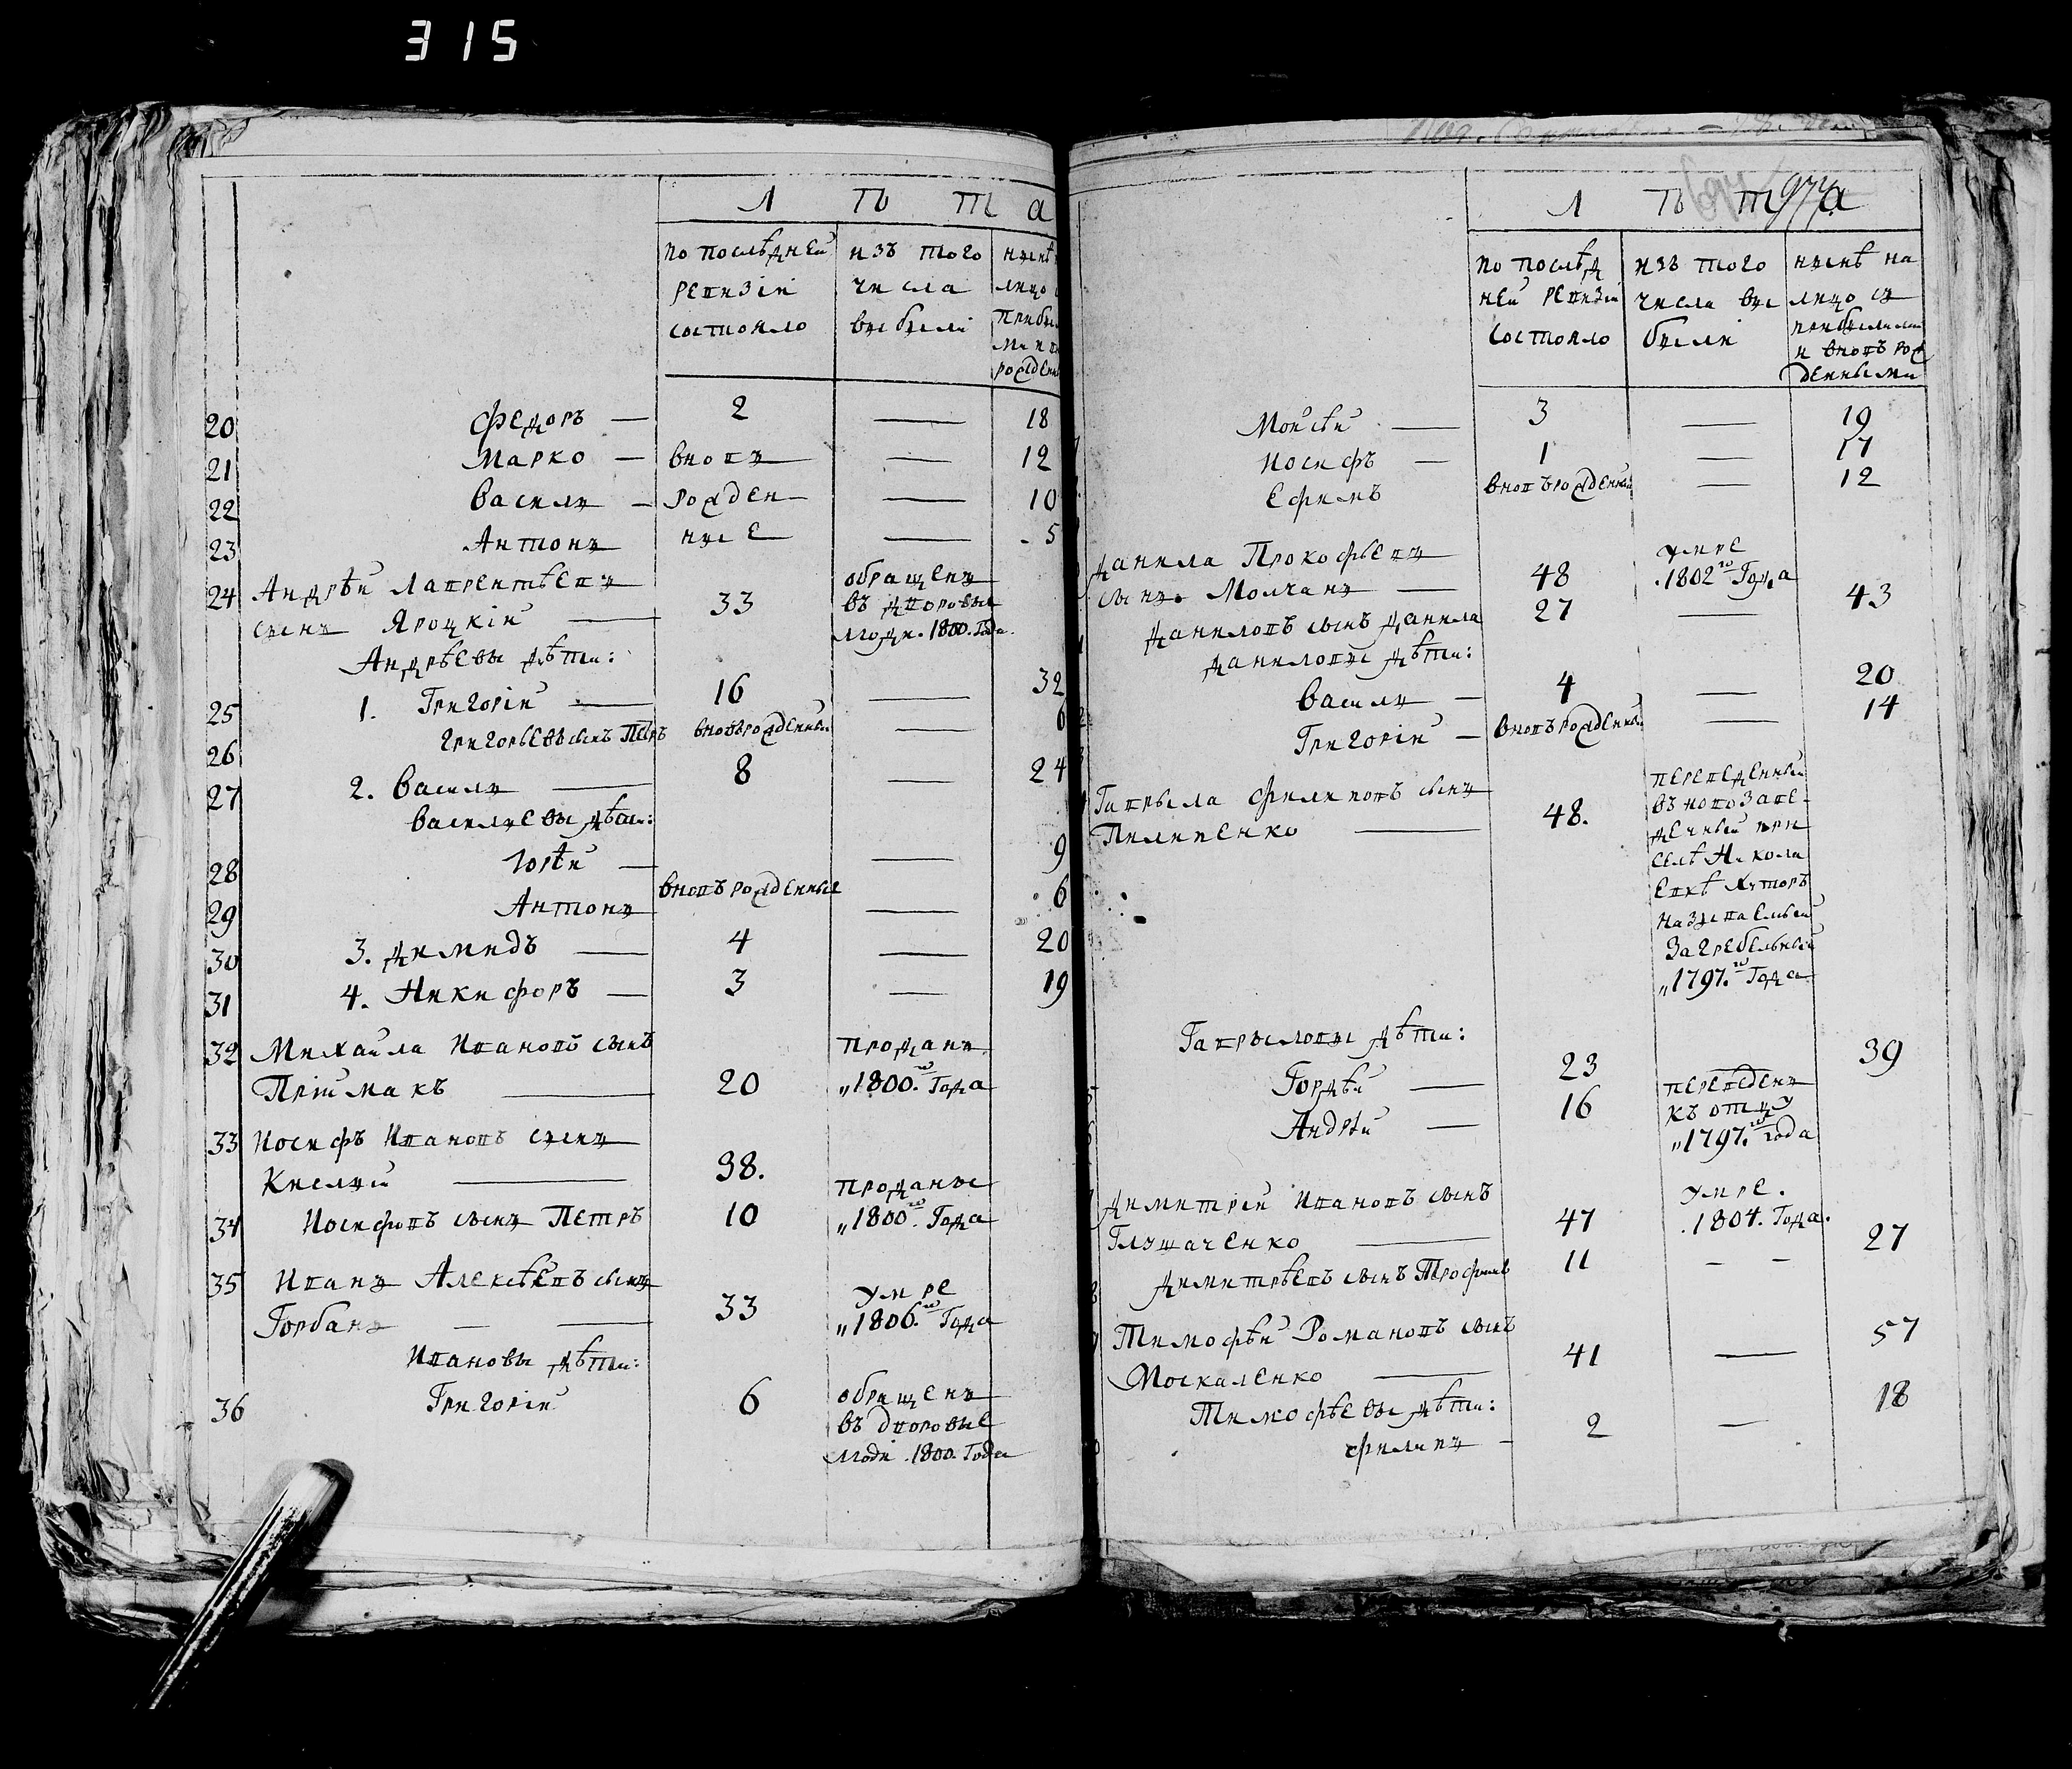 315
Л ѣ т а
по послѣдней
ревизіи
состояло
изъ того
числа
выбыли
нынѣ
лицо
прибы
рожден
20 Федоръ — 2 — 18
21 Марко — вновъ — 12
22 Василъ — рожден — 10
23 Антонъ ные — 5
24 Андрѣй Лаврентьевъ
сынъ Яроцкій — 33
обращенъ
въ дворовые
люди. 1800. Года.
Андрѣевы дѣти:
25 1. Григорій — 16 — 32
26 Григорьевъ сынъ Петръ вновърожденны. — 6
27 2. Василъ — 8 — 24
Васильевы дѣти:
28 — 9
вновърожденные
29 Антонъ — 6
30 3. Димидъ — 4 — 20
31 4. Никифоръ — 3 — 19
32 Михайла Ивановъ сынъ
Пріймакъ — 20
проданъ
„1800.го Года
33 Иосифъ Ивановъ сынъ
Кислый — 38.
34 Иосифовъ сынъ Петръ 10
проданы
„1800.го Года
35 Иванъ Алексѣевъ сынъ
Горбанъ — — 33
умре
„1806.го Года
Ивановы дѣти:
36 Григорій 6
обращенъ
въ дворовые
люди .1800. Года
974
Л ѣ т а
по послѣд
ней ревизіи
состояло
изъ того
числа вы
были
нынѣ на
лицо съ
прибылыми
и вновъ рож
денными
Мойсѣй — 3 — 19
Иосифъ — 1 — 17
Ефимъ вновърожденный — 12
Данила Прокофьевъ
сынъ Молчанъ — 48
умре
.1802го Года
Даниловъ сынъ Данила 27 — 43
Даниловы дѣти:
Василъ — 4 — 20
Григорій — вновърожденны. — 14
Гаврыла Филиповъ сынъ
Пилипенко — 48.
переведенный
въ новозаве-
дечный при
селѣ Никола
евкѣ хуторъ
называемый
Загребельный
„1797.го Года
Гаврыловы дѣти:
Гордѣй — 23 — 39
Андрѣй — 16
переведенъ
къ отцу
„1797.го года
Димитрій Ивановъ сынъ
Глущаченко — 47
умре.
.1804. Года.
Димитрѣевъ сынъ Трофимъ 11 — — 27
Тимофѣй Романовъ сынъ
Москаленко — 41 — 57
Тимофѣевы дѣти:
Филипъ — 2 — 18